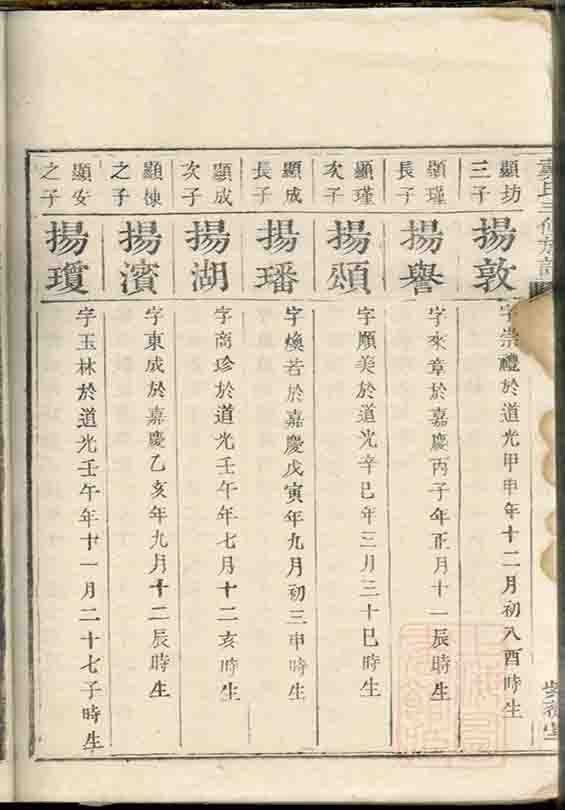 氏三修族譜
顯坊
三子
揚敦
字崇禮於道光甲申年十二月初八酉時生
顯瑾
長子
揚譽
字來章於嘉慶丙子年正月十一辰時生
顯瑾
次子
揚頌
字順美於道光辛巳年三月三十巳時生
顯成
長子
揚璠
字煥若於嘉慶戊寅年九月初三申時生
顯成
次子
揚湖
字商珍於道光壬午年七月十二亥時生
顯棟
之子
揚濱
字東成於嘉慶乙亥年九月十二辰時生
顯安
之子
揚瓊
字玉林於道光壬午年十一月二十七子時生